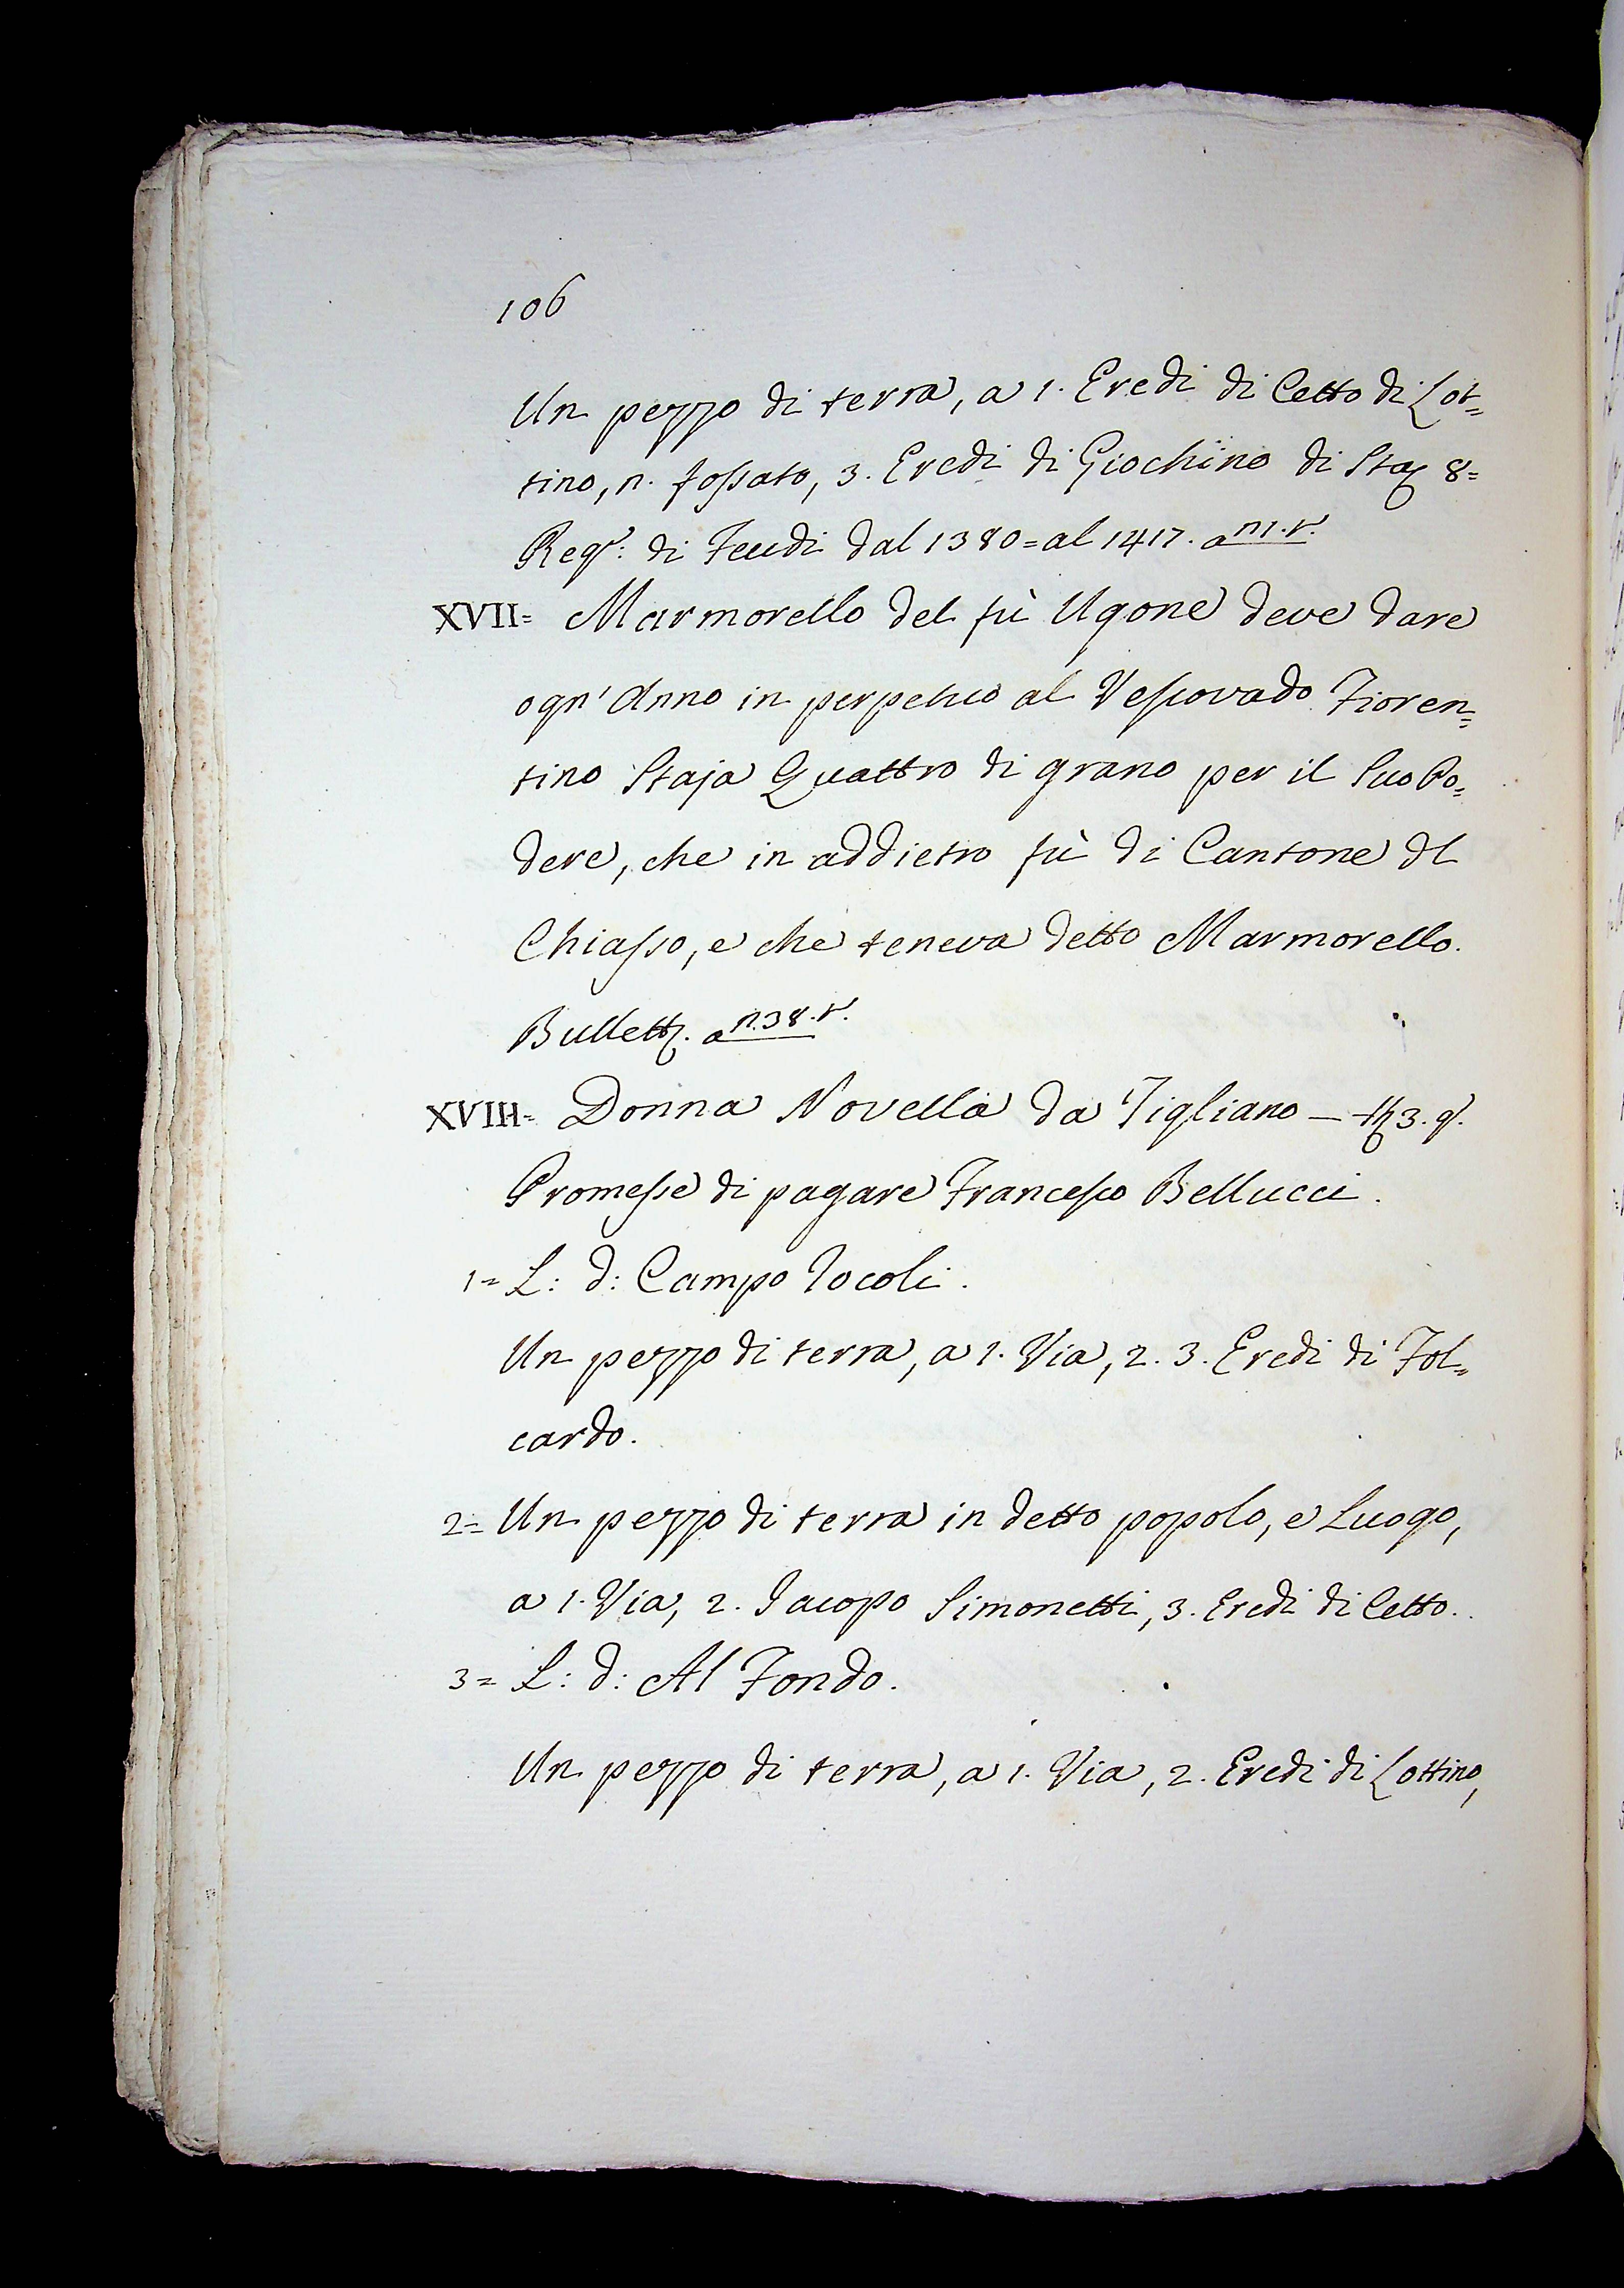 106
Un pezzo di terra, a 1. Eredi di Cetto di Lot=
tino, n. fossato, 3. Eredi di Giochino di Sta 8=
Regr: di Feudi dal 1380= al 1417. a n1.r.
XVII= Marmorello del fù Ugone deve dare
ogn' Anno in perpetuo al Vescovado Fioren=
tino Staja Quattro di grano per il Suo Po=
dere, che in addietro fù di Cantone dl
Chiasso, e che teneva detto Marmorello.
Bullett. a n.38.r.
XVIII= Donna Novella da Tigliano — 3.
Promesse di pagare Francesco Bellucci.
1= L: d: Campo Iocoli.
Un pezzo di terra, a 1. Via, 2. 3. Eredi di Fol=
cardo.
2= Un pezzo di terra in detto popolo, e Luogo,
a 1. Via, 2. Jacopo Simonetti, 3. Eredi di Cetto.
3= L: d: Al Fondo.
Un pezzo di terra, a 1. Via, 2. Eredi di Lottino,